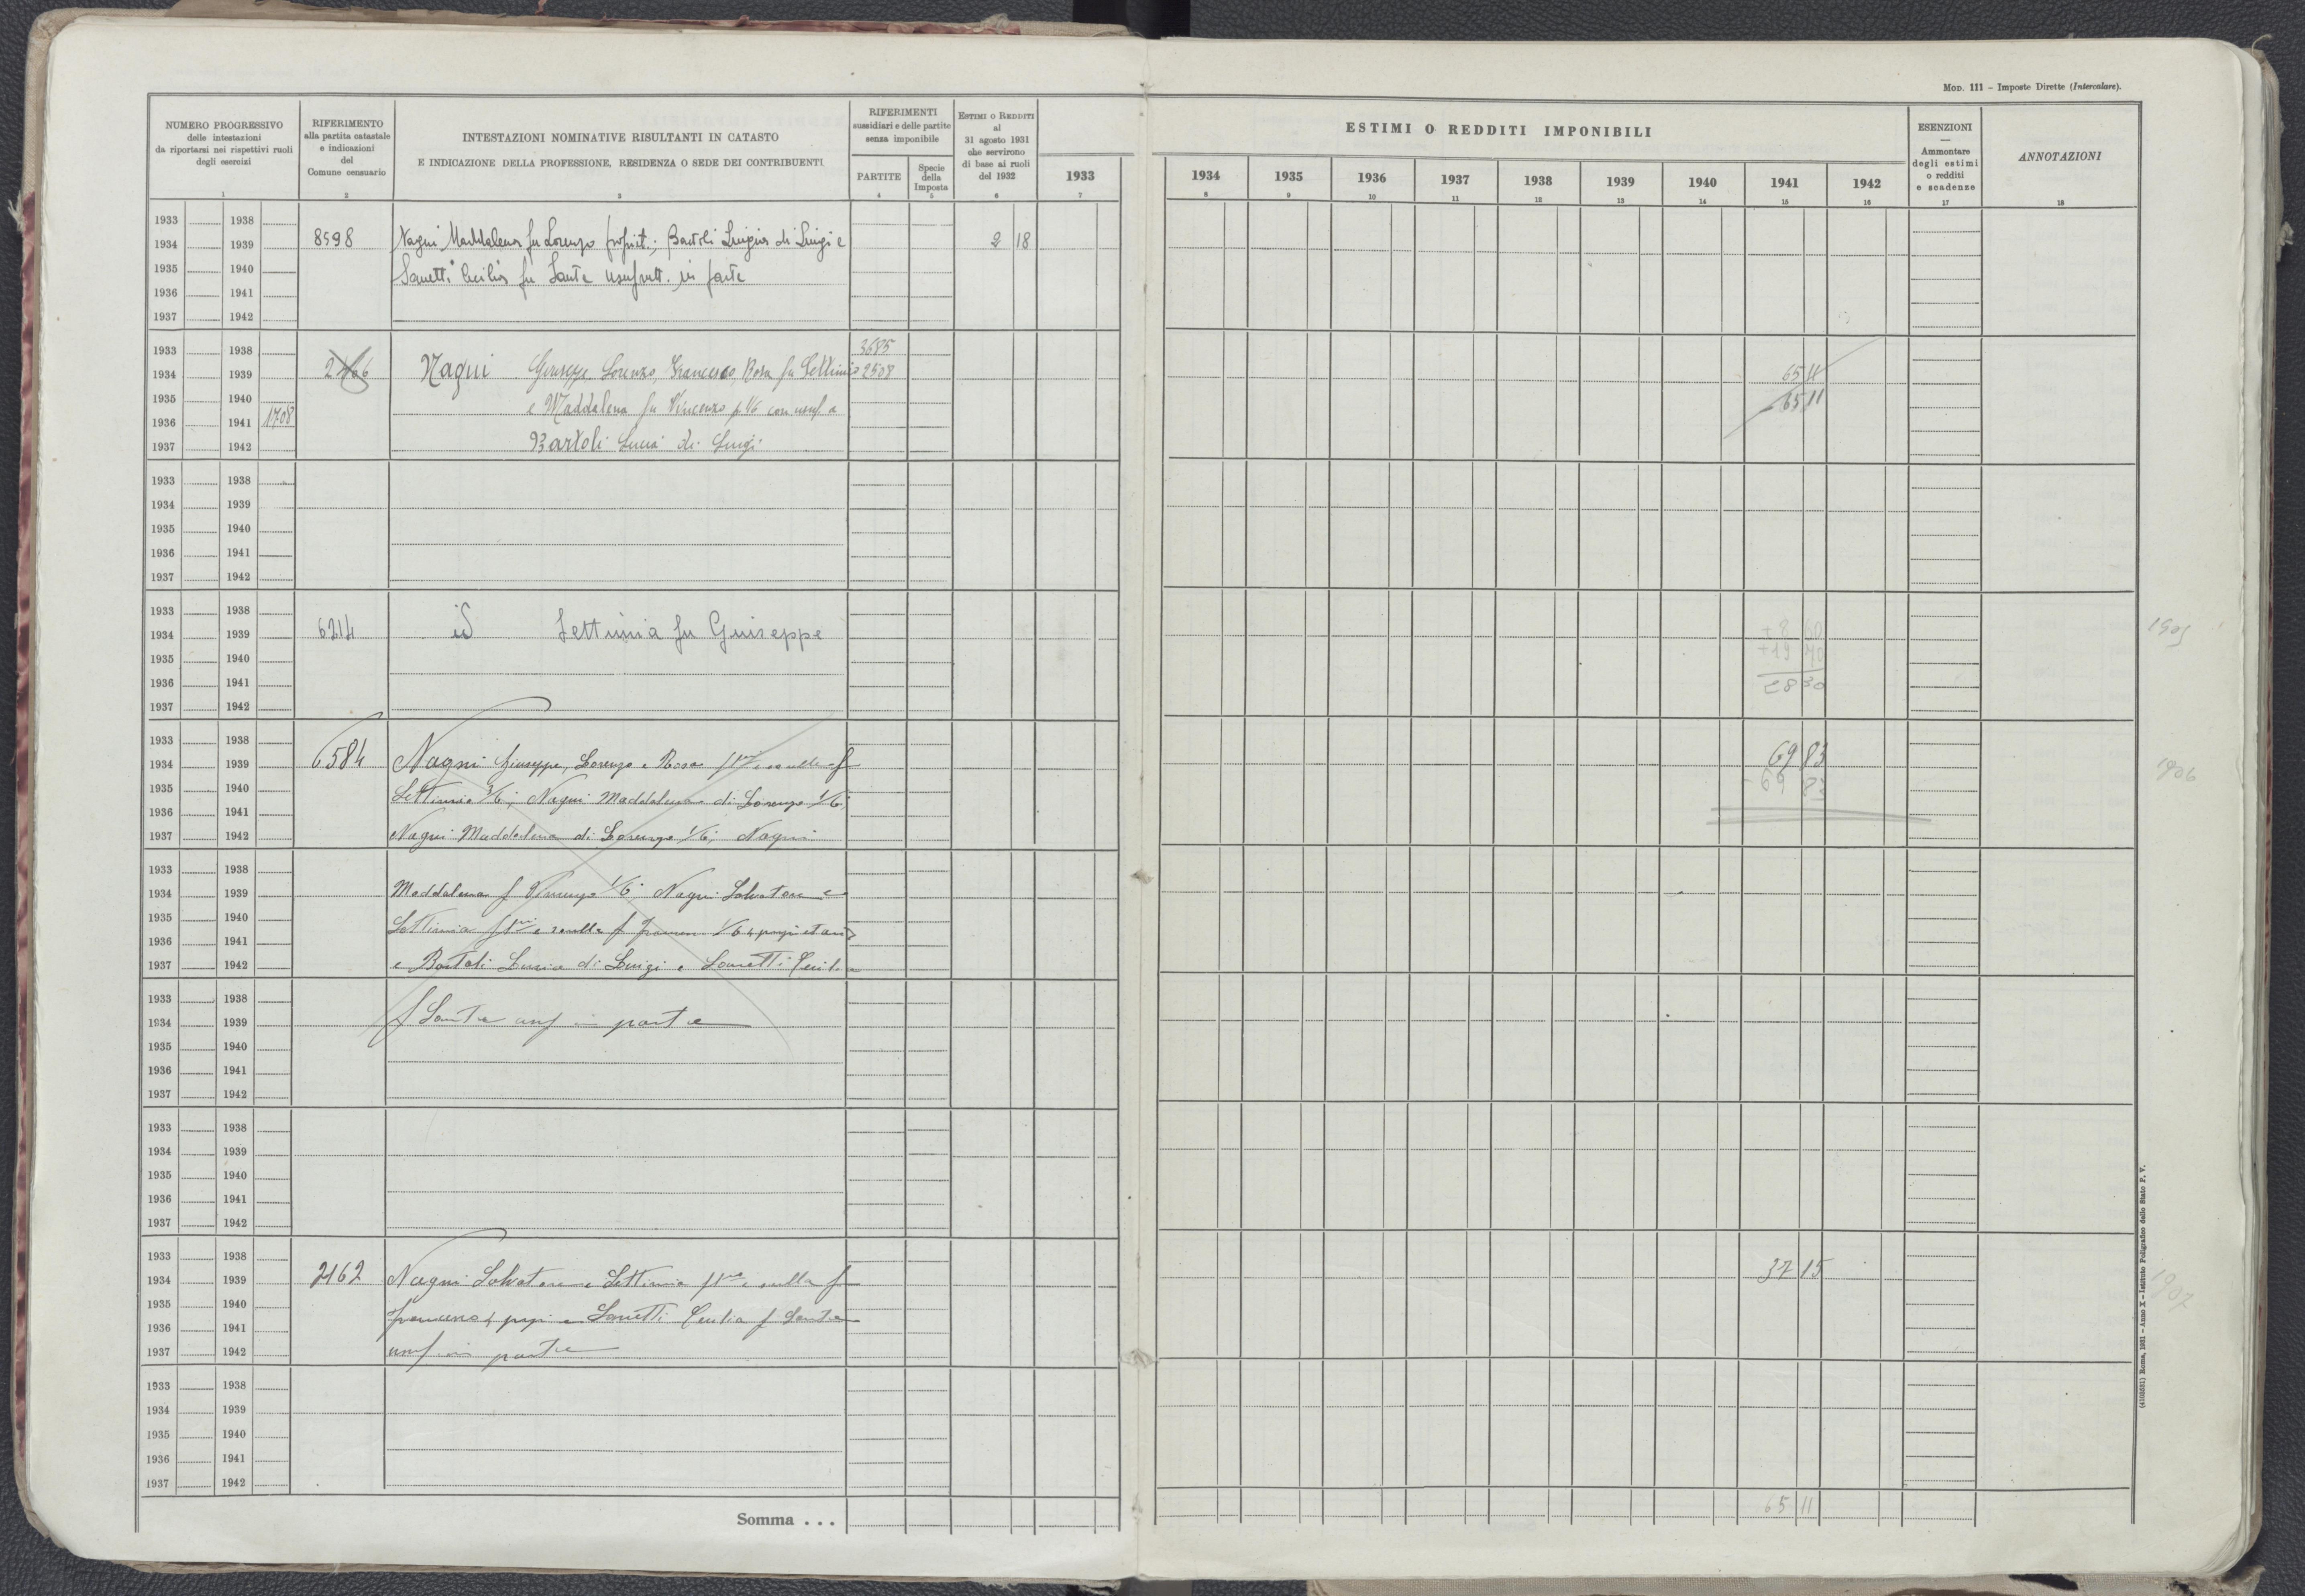 Mod. 111 – Imposte Dirette (Intercalare).
NUMERO PROGRESSIVO
delle intestazioni
da riportarsi nei rispettivi ruoli
degli esercizi
1
RIFERIMENTO
alla partita catastale
e indicazioni
del
Comune censuario
2
INTESTAZIONI NOMINATIVE RISULTANTI IN CATASTO
E INDICAZIONE DELLA PROFESSIONE, RESIDENZA O SEDE DEI CONTRIBUENTI
3
RIFERIMENTI
sussidiari e delle partite
senza imponibile
PARTITE
4
Specie
della
Imposta
5
Estimi o Redditi
al
31 agosto 1931
che servirono
di base ai ruoli
del 1932
6
1933
7
ESTIMI O REDDITI IMPONIBILI
1934 1935 1936 1937 1938 1939 1940 1941 1942
8 9 10 11 12 13 14 15 16
ESENZIONI
—
Ammontare
degli estimi
o redditi
e scadenze
17
ANNOTAZIONI
18
1933 1938
1934 1939 8598 Nagni Maddalena fu Lorenzo propriet.; Bartoli Luigia di Luigi e 2 18
1935 1940 Sanetti Cecilia fu Sante usufrutt. in parte
1936 1941
1937 1942
1933 1938 3685
1934 1939 2166 Nagni Giuseppe, Lorenzo, Francesco, Rosa fu Settimio 2508 65 11
1935 1940 e Maddalena fu Vincenzo p 1/6 con usuf. a 65 11
1936 1941 1708
1937 1942 Bartoli Lucia di Luigi
1933 1938
1934 1939
1935 1940
1936 1941
1937 1942
1933 1938
1934 1939 6214 id Settimia fu Giuseppe 1905
1935 1940 +19 70
1936 1941 28 30
1937 1942
1933 1938
1934 1939 6584 Nagni Giuseppe, Lorenzo e Rosa f.lli e sorella f 69 83 1906
1935 1940 Settimio 3/6; Nagni Maddalena di Lorenzo 1/6; - 69 83
1936 1941
1937 1942 Nagni Maddalena di Lorenzo 1/6; Nagni
1933 1938
1934 1939 Maddalena f Vincenzo 1/6; Nagni Salvatore e
1935 1940 Settimia f.lli e sorella f 1/6
1936 1941
1937 1942 e Bartoli Lucia di Luigi e Sanetti Cecilia
1933 1938
1934 1939 f Sante usuf in parte
1935 1940
1936 1941
1937 1942
1933 1938
1934 1939
1935 1940
1936 1941
1937 1942
1933 1938
1934 1939 2162 Nagni Salvatore e Settimia f 37 15 1907
1935 1940 e Sanetti Cecilia f Sante
1936 1941
1937 1942 usuf in parte
1933 1938
1934 1939
1935 1940
1936 1941
1937 1942
Somma . . . 65 11
(4103831) Roma, 1931 – Anno X – Istituto Poligrafico dello Stato P. V.